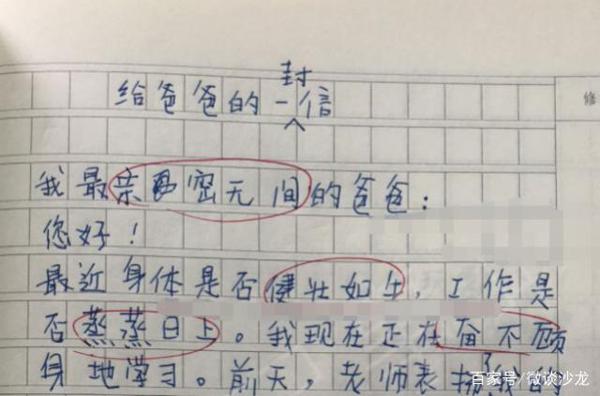 给爸爸的一封信
修
我最亲密无间的爸爸：
您好！
最近身体是否健壮如牛，工作是
否蒸蒸日上。我现在正在奋不顾
身地学习。前天，老师表扬
百家号/微谈沙龙